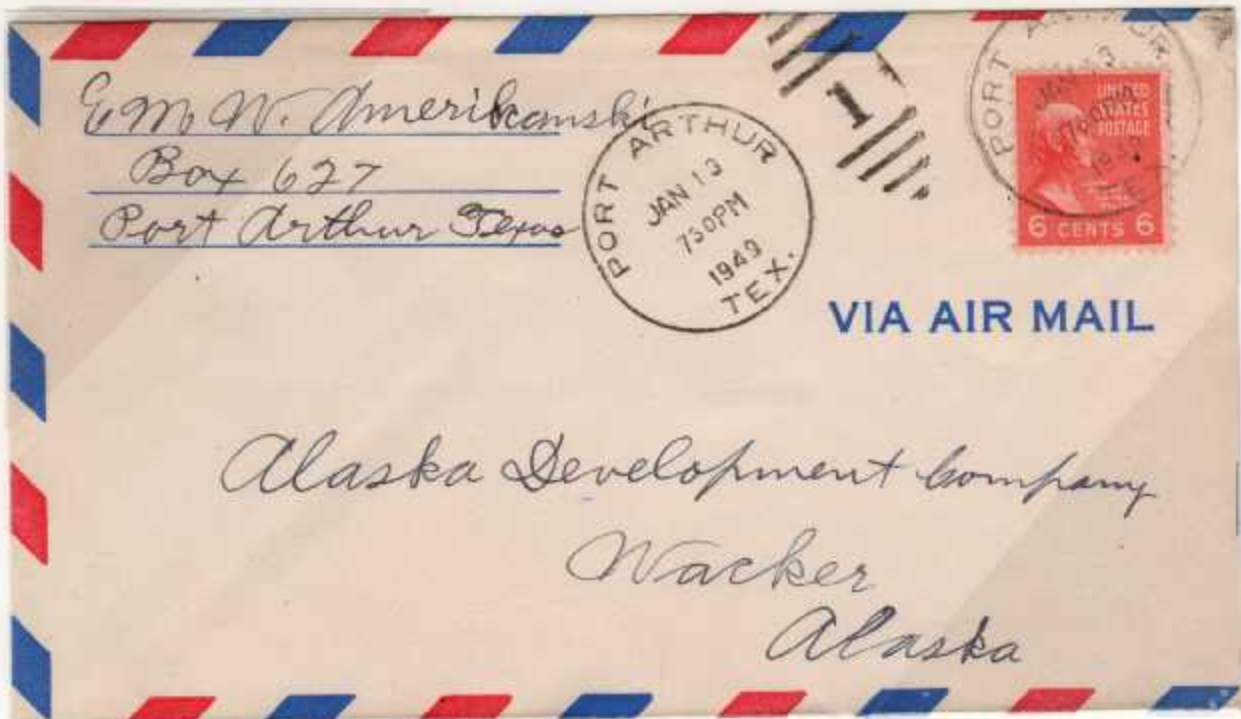 E M W. Amerikanski
Box 627
Port Arthur Texas
PORT ARTHUR
JAN 13
730PM
1949
TEX.
1
PORT ARTHUR
JAN 13
730PM
1949
TEX.
UNITED
STATES
POSTAGE
6 CENTS 6
VIA AIR MAIL
Alaska Development Company
Wacker
Alaska